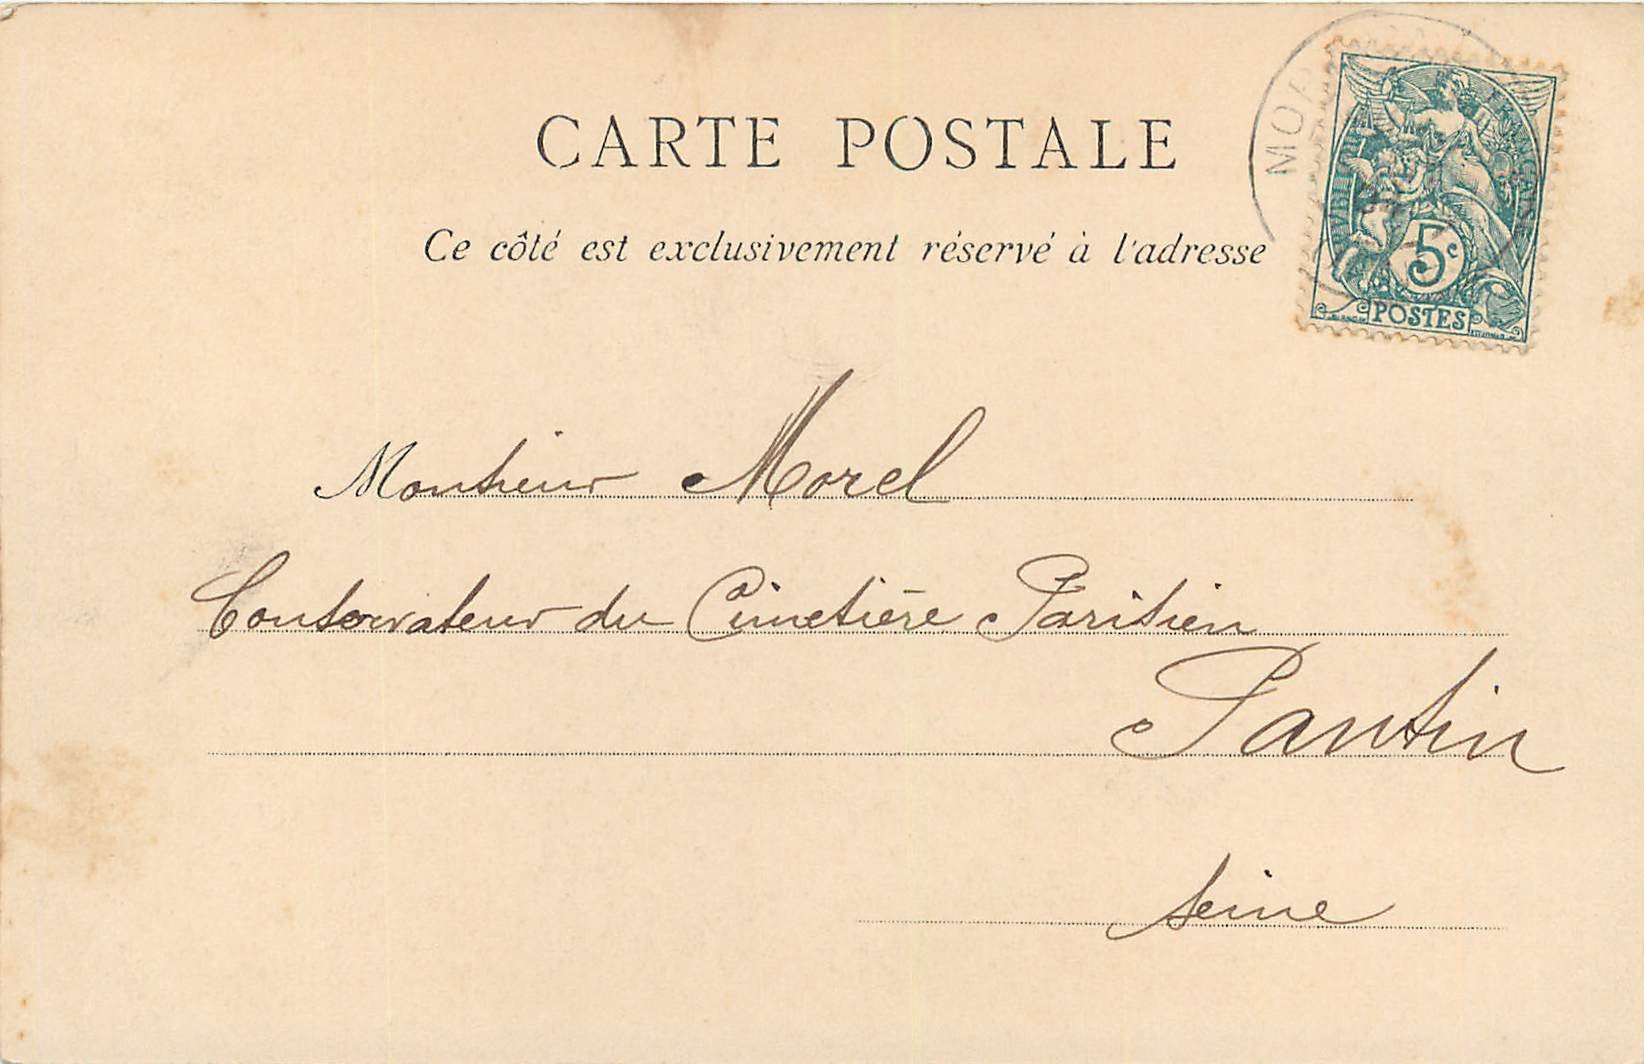 CARTE POSTALE
Ce côté est exclusivement réservé à l'adresse
5c
POSTES
Monsieur Morel
Conservateur du Cimetière Parisien
Pantin
Seine